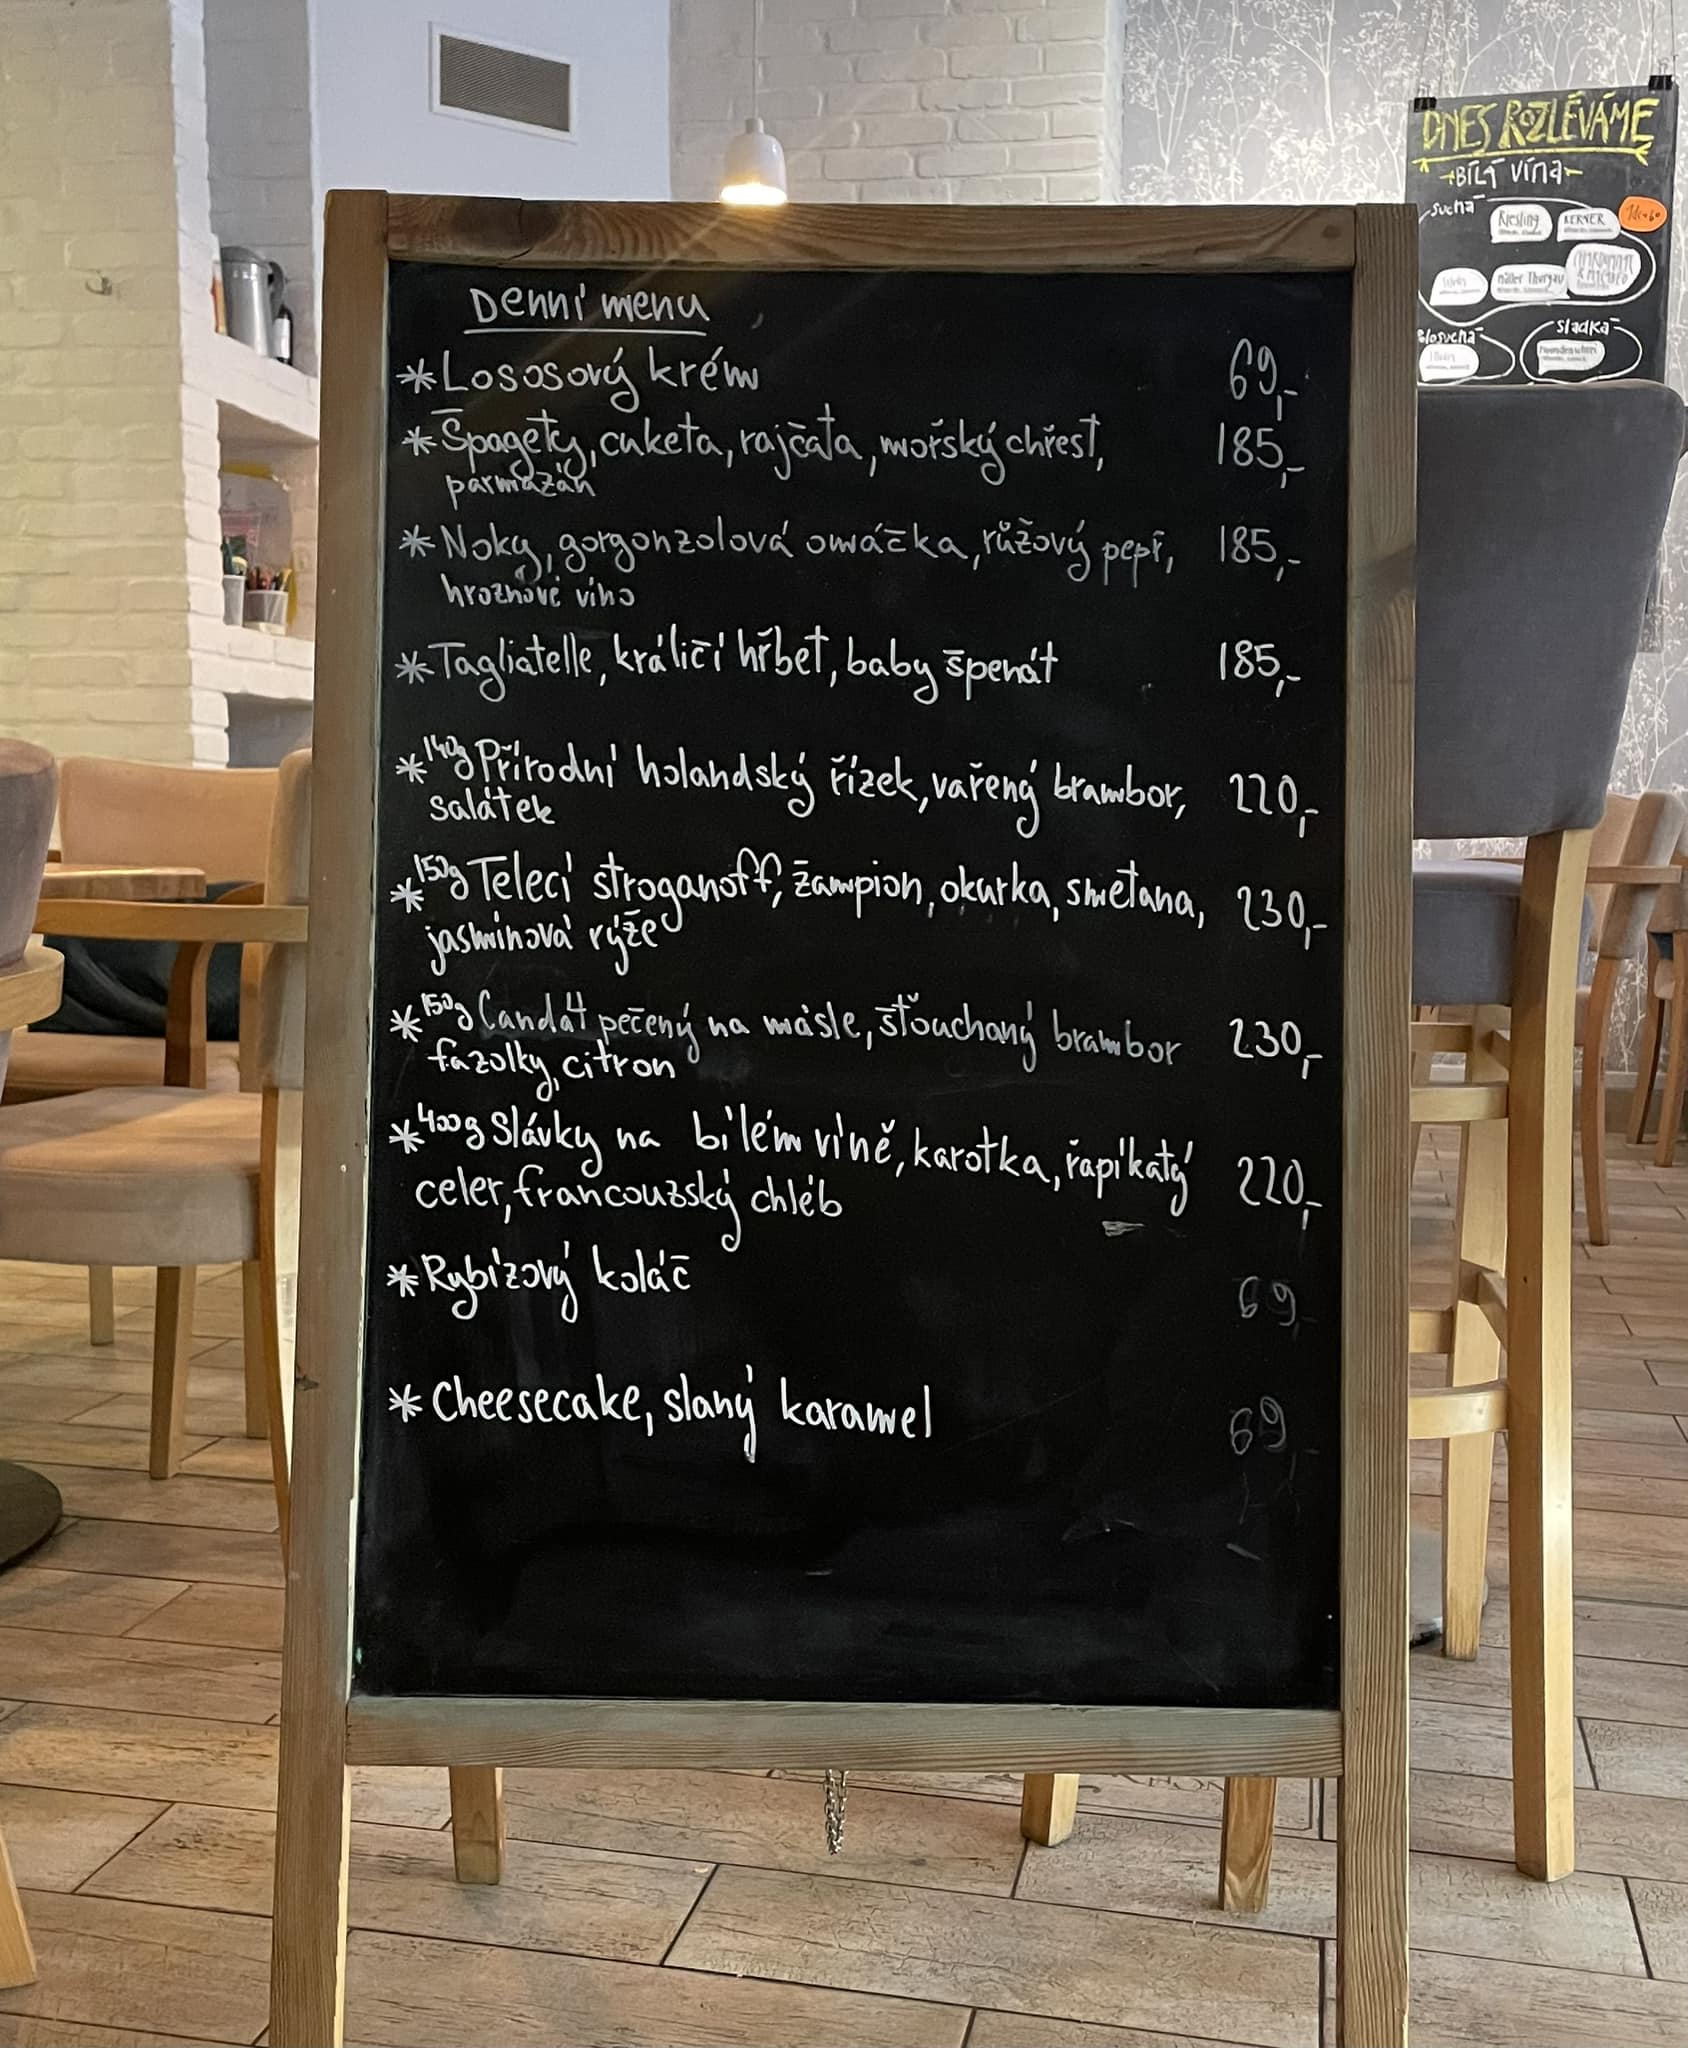 Denní menu
*Lososový krém 69,-
*Špagety, cuketa, rajčata, mořský chřest, 185,-
parmazán
*Noky, gorgonzolová omáčka, růžový pepř, 185,-
hroznové víno
*Tagliatelle, králičí hřbet, baby špenát 185,-
*140g Přírodní holandský řízek, vařený brambor, 220,-
salátek
*150g Telecí stroganoff, žampion, okurka, smetana, 230,-
jasmínová rýže
*150g Candát pečený na másle, šťouchaný brambor 230,-
fazolky, citron
*400g Slávky na bílém víně, karotka, řapíkatý 220,-
celer, francouzský chléb
*Rybízový koláč 69,-
*Cheesecake, slaný karamel 69,-
DNES ROZLÉVÁME
BÍLÁ VÍNA
suchá
Riesling
KERNER
Müller Thurgau
Polosuchá
sladká